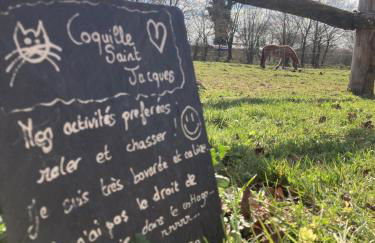 Coquille
Saint
Jacques
Mes activités préférées
raler et chasser
je suis très bavarde et caline
n'ai pas le droit de
dans le cottage...
rrrrr...